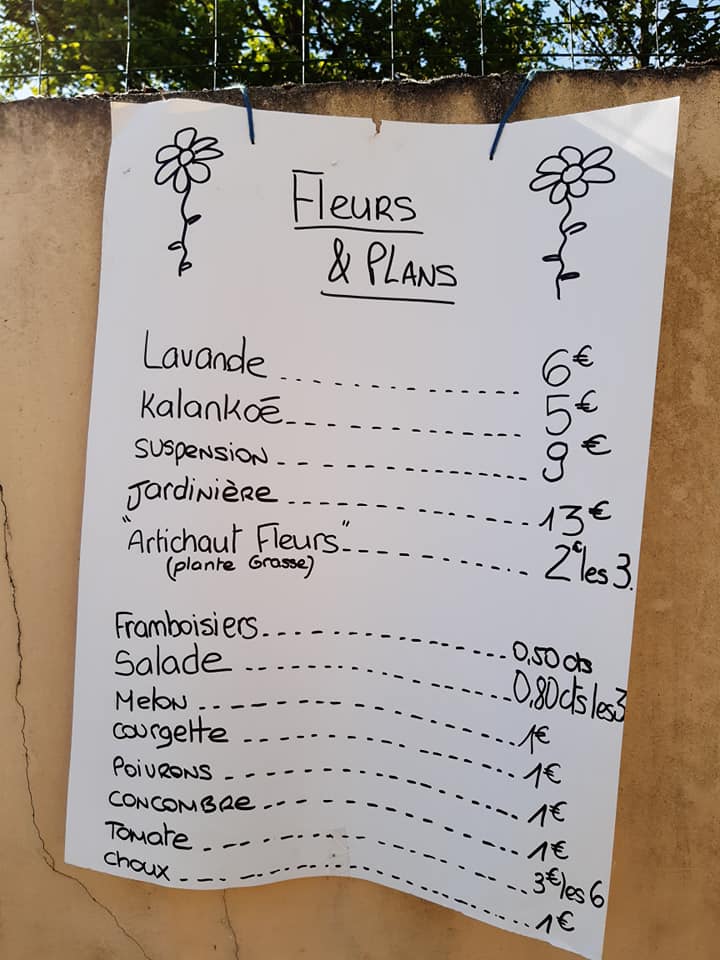 Fleurs
& PLANS
Lavande 6€
Kalankoé 5€
SUSPENSION 9€
Jardinière 13€
"Artichaut Fleurs" 2€ les 3.
(plante Grasse)
Framboisiers 0,50 cts
Salade 0,80 cts les 3
Melon 1€
courgette 1€
POIVRONS 1€
CONCOMBRE 1€
Tomate 3€ les 6
choux 1€